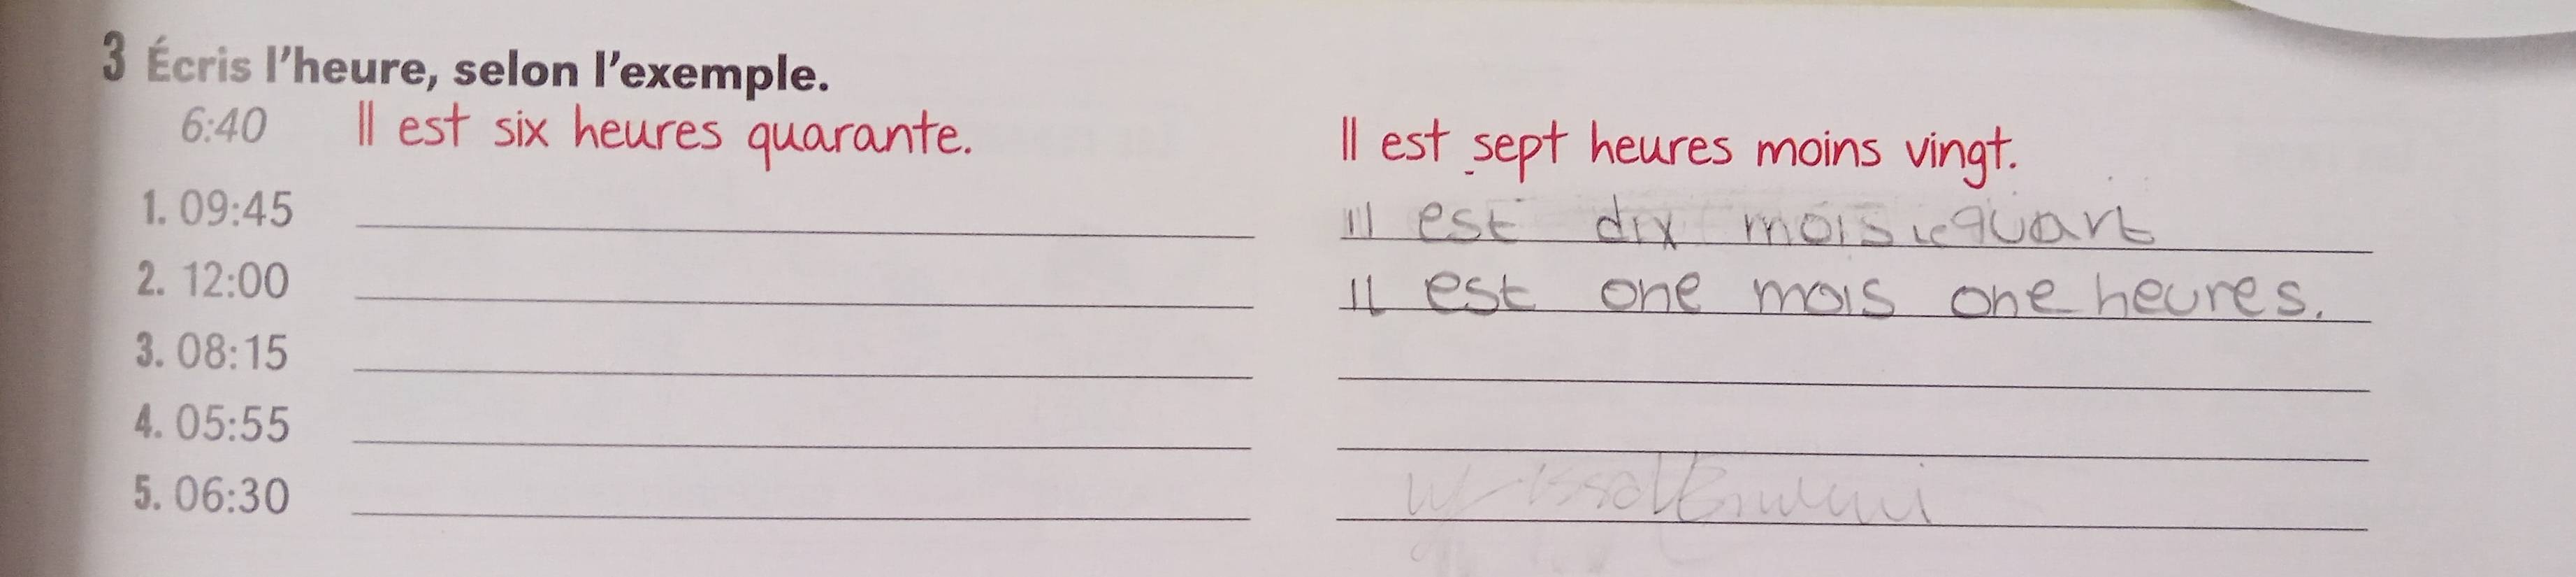 3 Écris l'heure, selon l'exemple.
6:40 Il est six heures quarante. Il est sept heures moins vingt.
1. 09:45 Il est dix mois le quart
2. 12:00 Il est one mois one heures.
3. 08:15
4. 05:55
5. 06:30